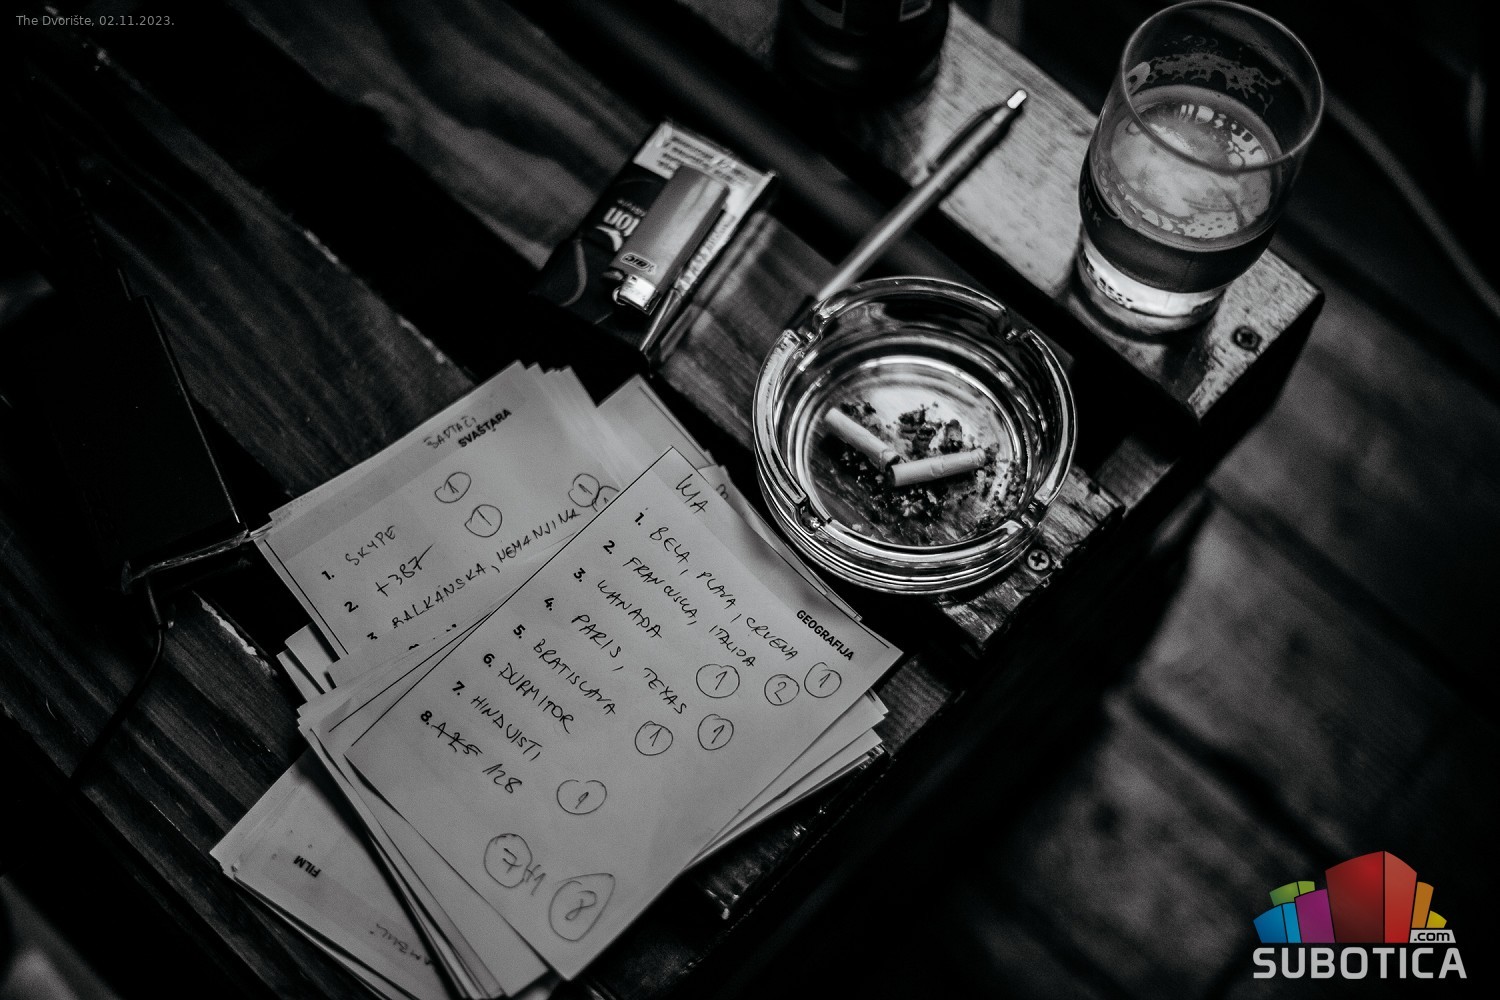 The Dvorište, 02.11.2023.
BIC
SVAŠTARA
1
1
1. SKYPE
2 +387
3 BALKANSKA, NEMANJINA
GEOGRAFIJA
1. BELA, PLAVA, CRVENA
2 FRANCUSKA, ITALIJA
3. KANADA
4. PARIS, TEXAS
5. BRATISLAVA
6. DURMITOR
7. HINDUISTI
8. 128
1
2
1
1
1
1
7+1
8
FILM
.com
SUBOTICA